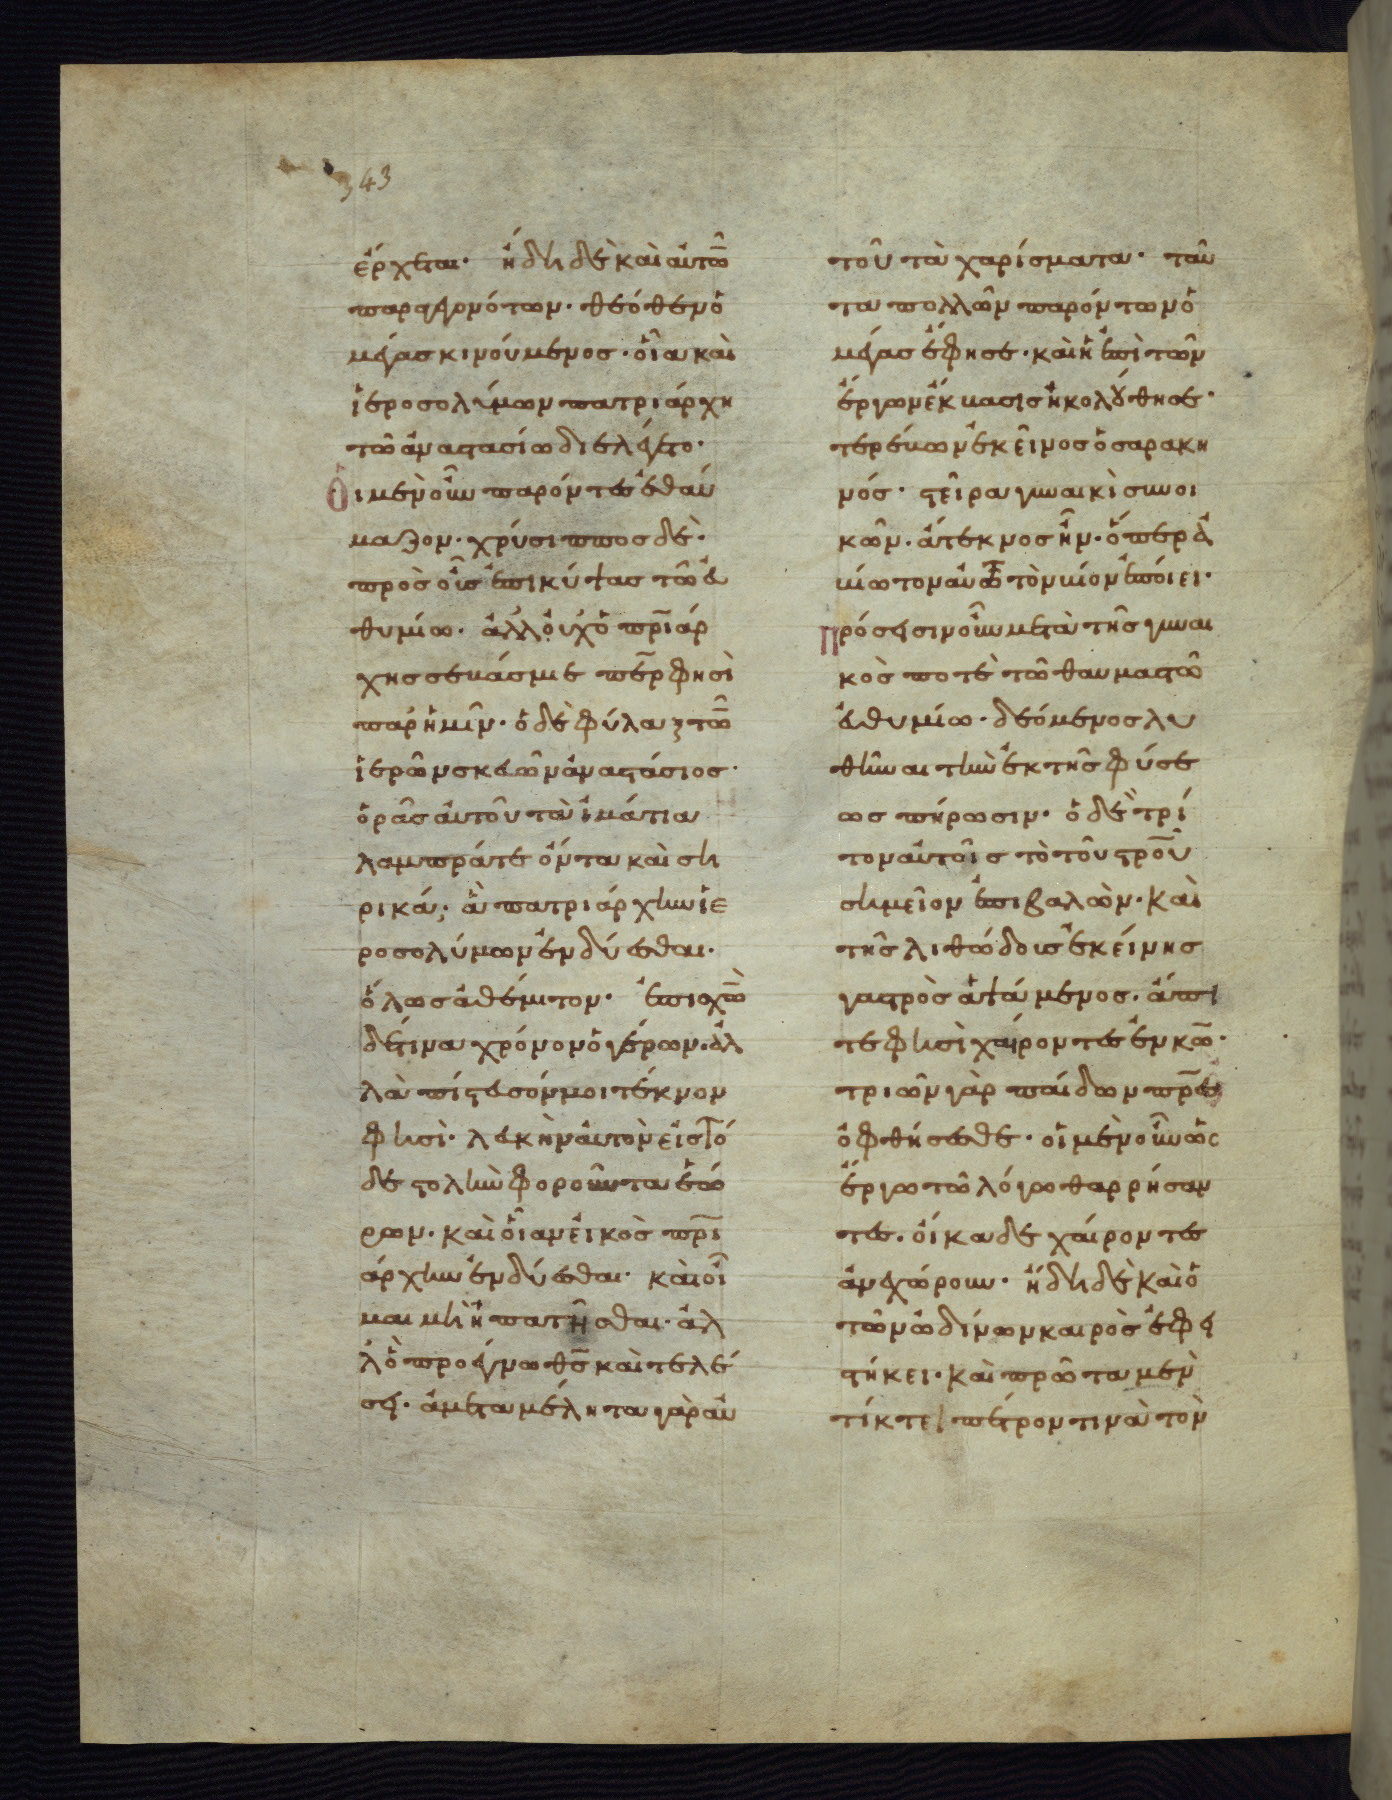 343
ἔρχεται· ἤδη δὲ καὶ αὐτῶ
παρηρμότων· θεόθεν ὁ
μέγας κινούμενος· οἷα καὶ
ἱεροσολύμων πατριάρχη
τῶ ἀναστασίω διελέγετο·
Οἱ μὲν οὖν παρόντες ἐθαύ
μαζον· χρύσιππος δὲ·
πρὸς οἷς ἐπικύψας τῶ εὐ
θυμίω· ἀλλ' οὐχ ὁ πρῖάρ
χης σεβάσμιε περ φησὶ
παρ' ἡμῖν· ὁ δὲ φύλαξ τῶ
ἱερῶν σκευῶν ἀναστάσιος·
ὁρᾶς αὐτοῦ τὰ ἱμάτια
λαμπρά τε ὄντα καὶ ση
ρικά; ἃ πατριάρχην ἱε
ροσολύμων ἐνδύεσθαι·
ὅλως ἀθέμιτον· ἐπισχὼ
δέ τινα χρόνον ὁ γέρων· ἀλ
λὰ πίστευσόν μοι τέκνον
φησὶ· λευκὴν αὐτὸν εἰς τό
δε στολὴν φοροῦντα ἑώ
ρων· καὶ οἵαν εἰκὸς πρῖ
άρχην ἐνδύεσθαι· καὶ οἶ
μαι μὴ ἠπατῆσθαι· ἀλ
λ' ὃ προέγνω θς καὶ τελέ
σει· ἀμεταμέλητα γὰρ αὐ
τοῦ τὰ χαρίσματα· ταῦ
τα πολλῶν παρόντων ὁ
μέγας ἔφησε· καὶ ἡ ἐπὶ τῶν
ἔργων ἔκβασις ἠκολούθησε·
τερέβων ἐκεῖνος ὁ σαρακη
νός· στεῖρα γυναικὶ συνοι
κῶν· ἄτεκνος ἦν· ὅπερ ἀ
βίωτον αὐτῶ τὸν βίον ἐποίει·
Πρόσεισιν οὖν μετὰ τῆς γυναι
κὸς ποτὲ τῶ θαυμαστῶ
εὐθυμίω· δεόμενος λυ
θῆναι τὴν ἐκ τῆς φύσε
ως πήρωσιν· ὁ δὲ τρί
τον αὐτοῖς τὸ τοῦ στροῦ
σημεῖον ἐπιβαλὼν· καὶ
τῆς λιθώδους ἐκείνης
γαστρὸς ἁψάμενος· ἄπι
τε φησὶ χαίροντες ἐν κῶ·
τριῶν γὰρ παίδων πρες
ὀφθήσεσθε· οἱ μὲν οὖν ὡς
ἔργω τῶ λόγω θαρρήσαν
τες· οἴκαδε χαίροντες
ἀνεχώρουν· ἤδη δὲ καὶ ὁ
τῶν ὠδίνων καιρὸς ἐφει
στήκει· καὶ πρῶτα μὲν
τίκτει πέτρον τινὰ τὸν